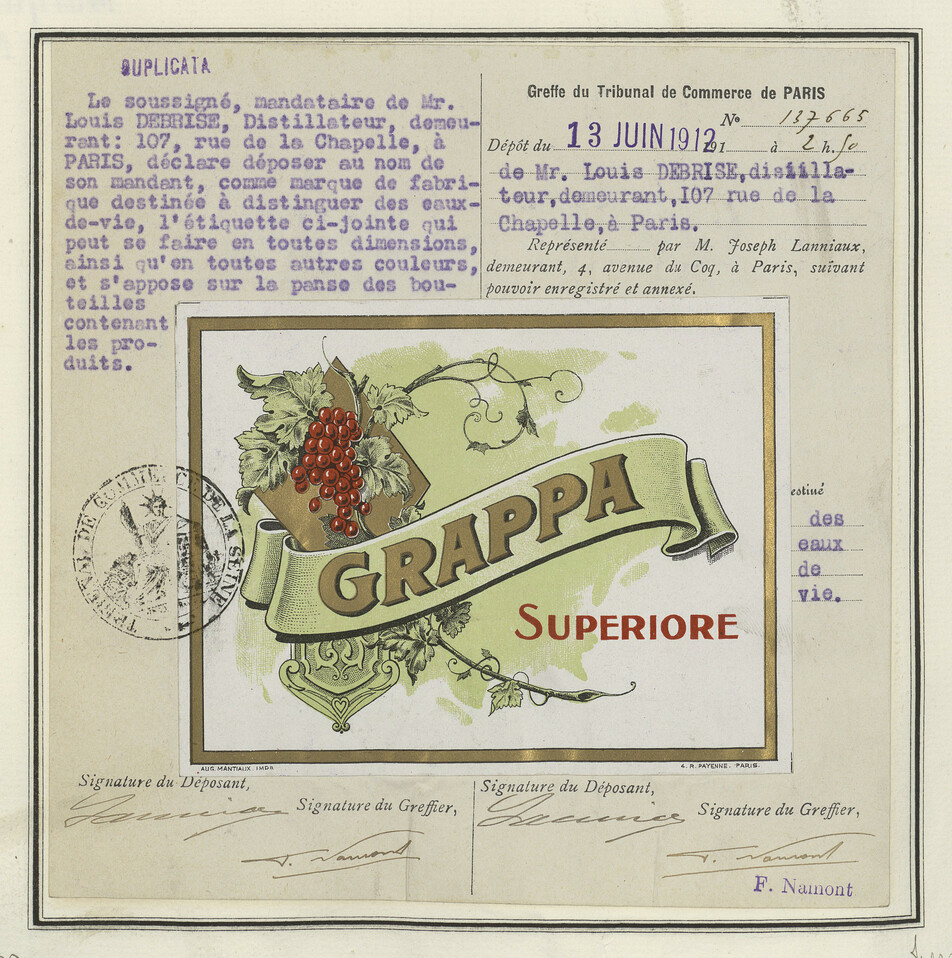 DUPLICATA
Le soussigné, mandataire de Mr.
Louis DEBRISE, Distillateur, demeu-
rant: 107, rue de la Chapelle, à
PARIS, déclare déposer au nom de
son mandant, comme marque de fabri-
que destinée à distinguer des eaux-
de-vie, l'étiquette ci-jointe qui
peut se faire en toutes dimensions,
ainsi qu'en toutes autres couleurs,
et s'appose sur la panse des bou-
teilles
contenant
les pro-
duits.
Greffe du Tribunal de Commerce de PARIS
No 137665
Dépôt du 13 JUIN 1912 191 à 2 h. 50
de Mr. Louis DEBRISE,distilla-
teur,demeurant,I07 rue de la
Chapelle,à Paris.
Représenté par M. Joseph Lanniaux,
demeurant, 4, avenue du Coq, à Paris, suivant
pouvoir enregistré et annexé.
estiné
des
eaux
de
vie.
TRIBUNAL DE COMMERCE DE LA SEINE
GRAPPA
SUPERIORE
AUG. MANTIAUX. IMPR
4. R. PAYENNE. PARIS.
Signature du Déposant,
Signature du Greffier,
F. Namont
Signature du Déposant,
Signature du Greffier,
F. Namont
F. Namont